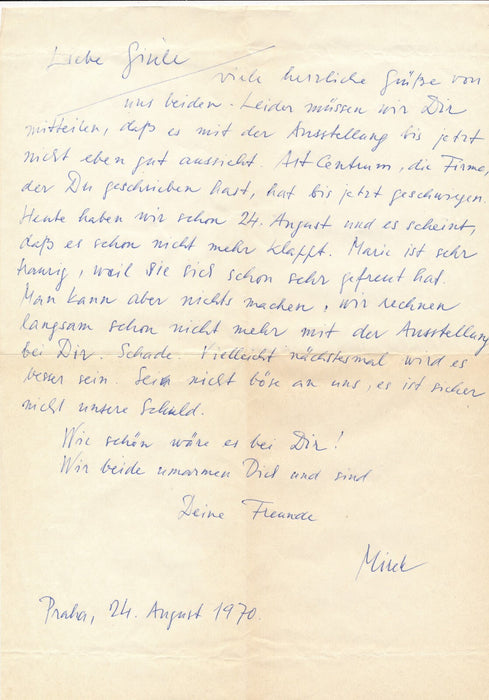 Liebe Gisèle
viele herzliche Grüße von
uns beiden. Leider müssen wir Dir
mitteilen, daß es mit der Ausstellung bis jetzt
nicht eben gut aussicht. Art Centrum, die Firme,
der Du geschrieben hast, hat bis jetzt geschwiegen.
Heute haben wir schon 24. August und es scheint,
daß es schon nicht mehr klappt. Marie ist sehr
traurig, weil Sie sich schon sehr gefreut hat.
Man kann aber nichts machen, wir rechnen
langsam schon nicht mehr mit der Ausstellung
bei Dir. Schade. Vielleicht nächstesmal wird es
besser sein. Sei nicht böse an uns, es ist sicher
nicht unsere Schuld.
Wie schön wäre es bei Dir!
Wir beide umarmen Dich und sind
Deine Freunde
Mirek
Praha, 24. August 1970.